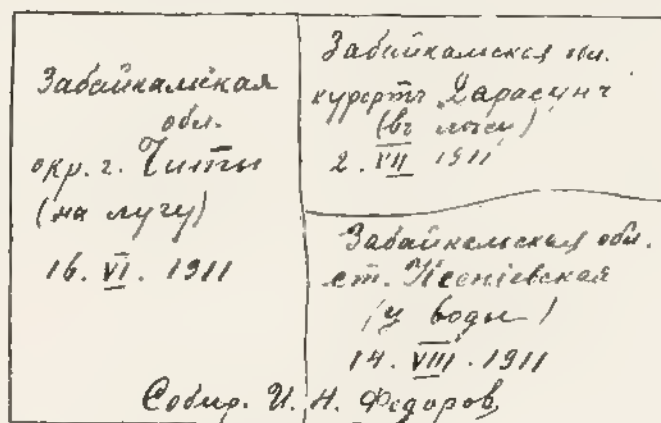 Забайкальская
обл.
окр. г. Читы
(на лугу)
16. VI. 1911
Забайкальская обл.
курортъ Дарасунъ
(въ лѣсу)
2. VII 1911
Забайкальская обл.
ст. Ксеніевская
(у воды)
14. VIII. 1911
Собир. И. Н. Федоров